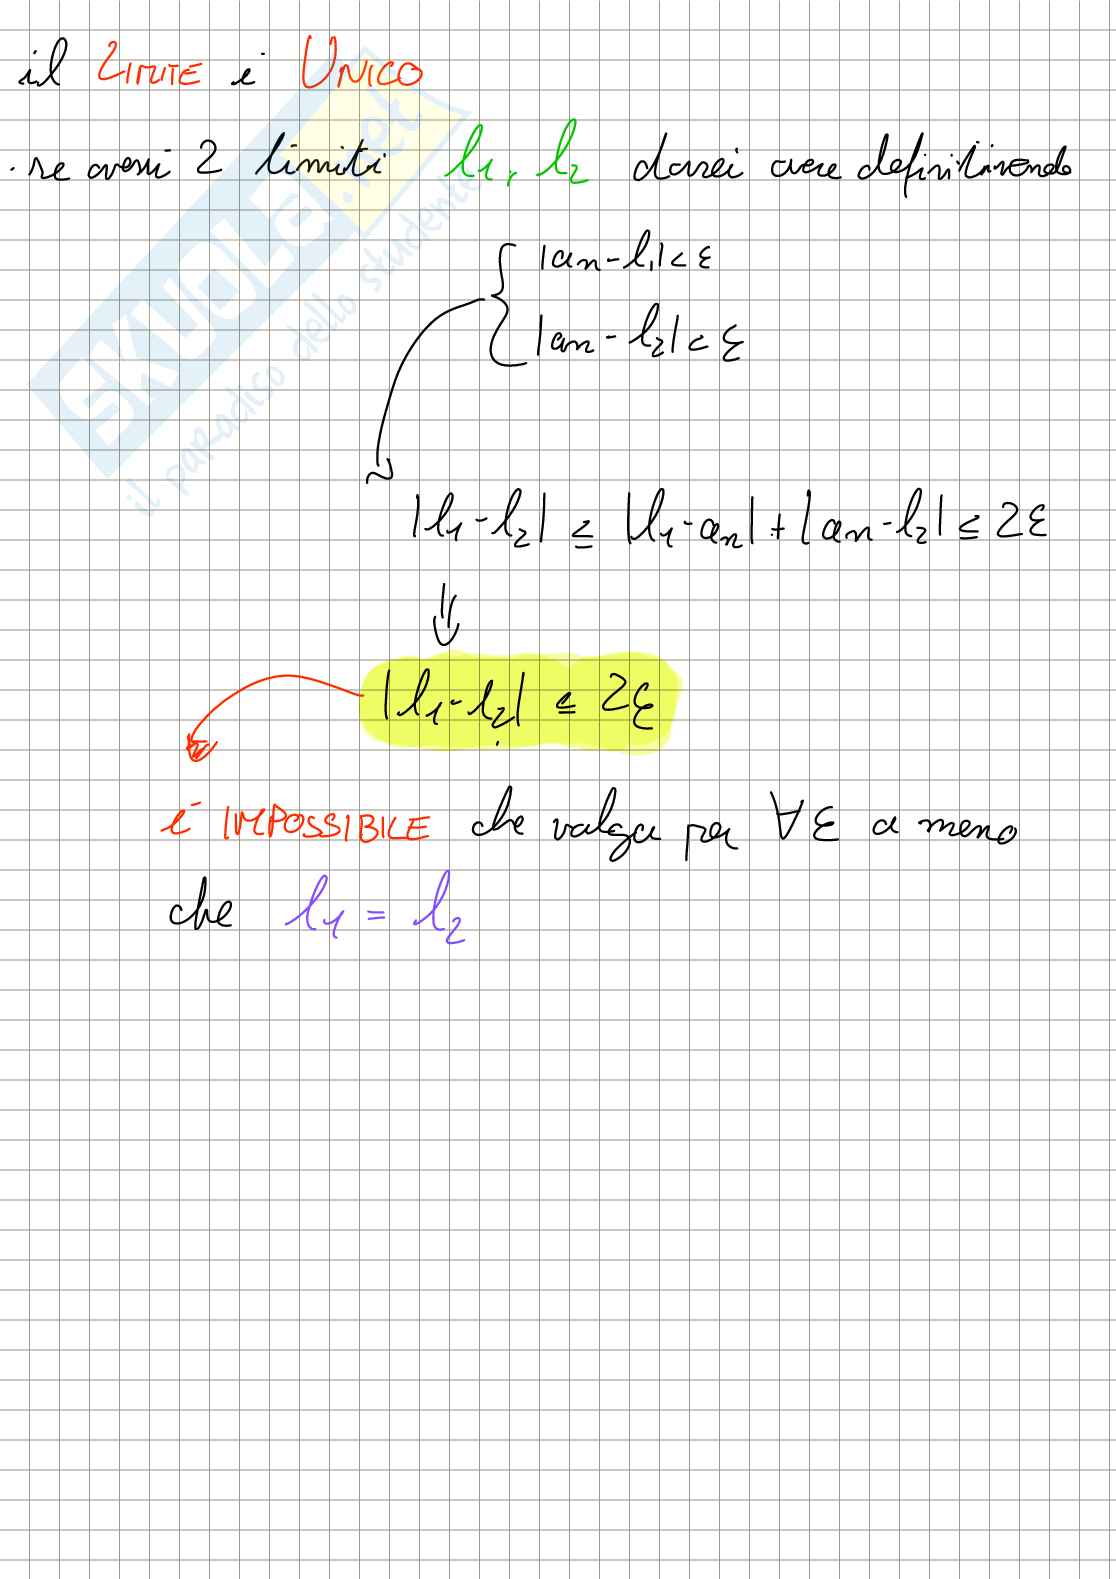 il LIMITE è UNICO
. se avessi 2 limiti l₁, l₂ dovrei avere definitivamente
|an - l₁| < ε
|an - l₂| < ε
|l₁ - l₂| ≤ |l₁ - an| + |an - l₂| ≤ 2ε
⇓
|l₁ - l₂| ≤ 2ε
è IMPOSSIBILE che valga per ∀ε a meno
che l₁ = l₂
SKUOLA.net
il paradiso dello studente